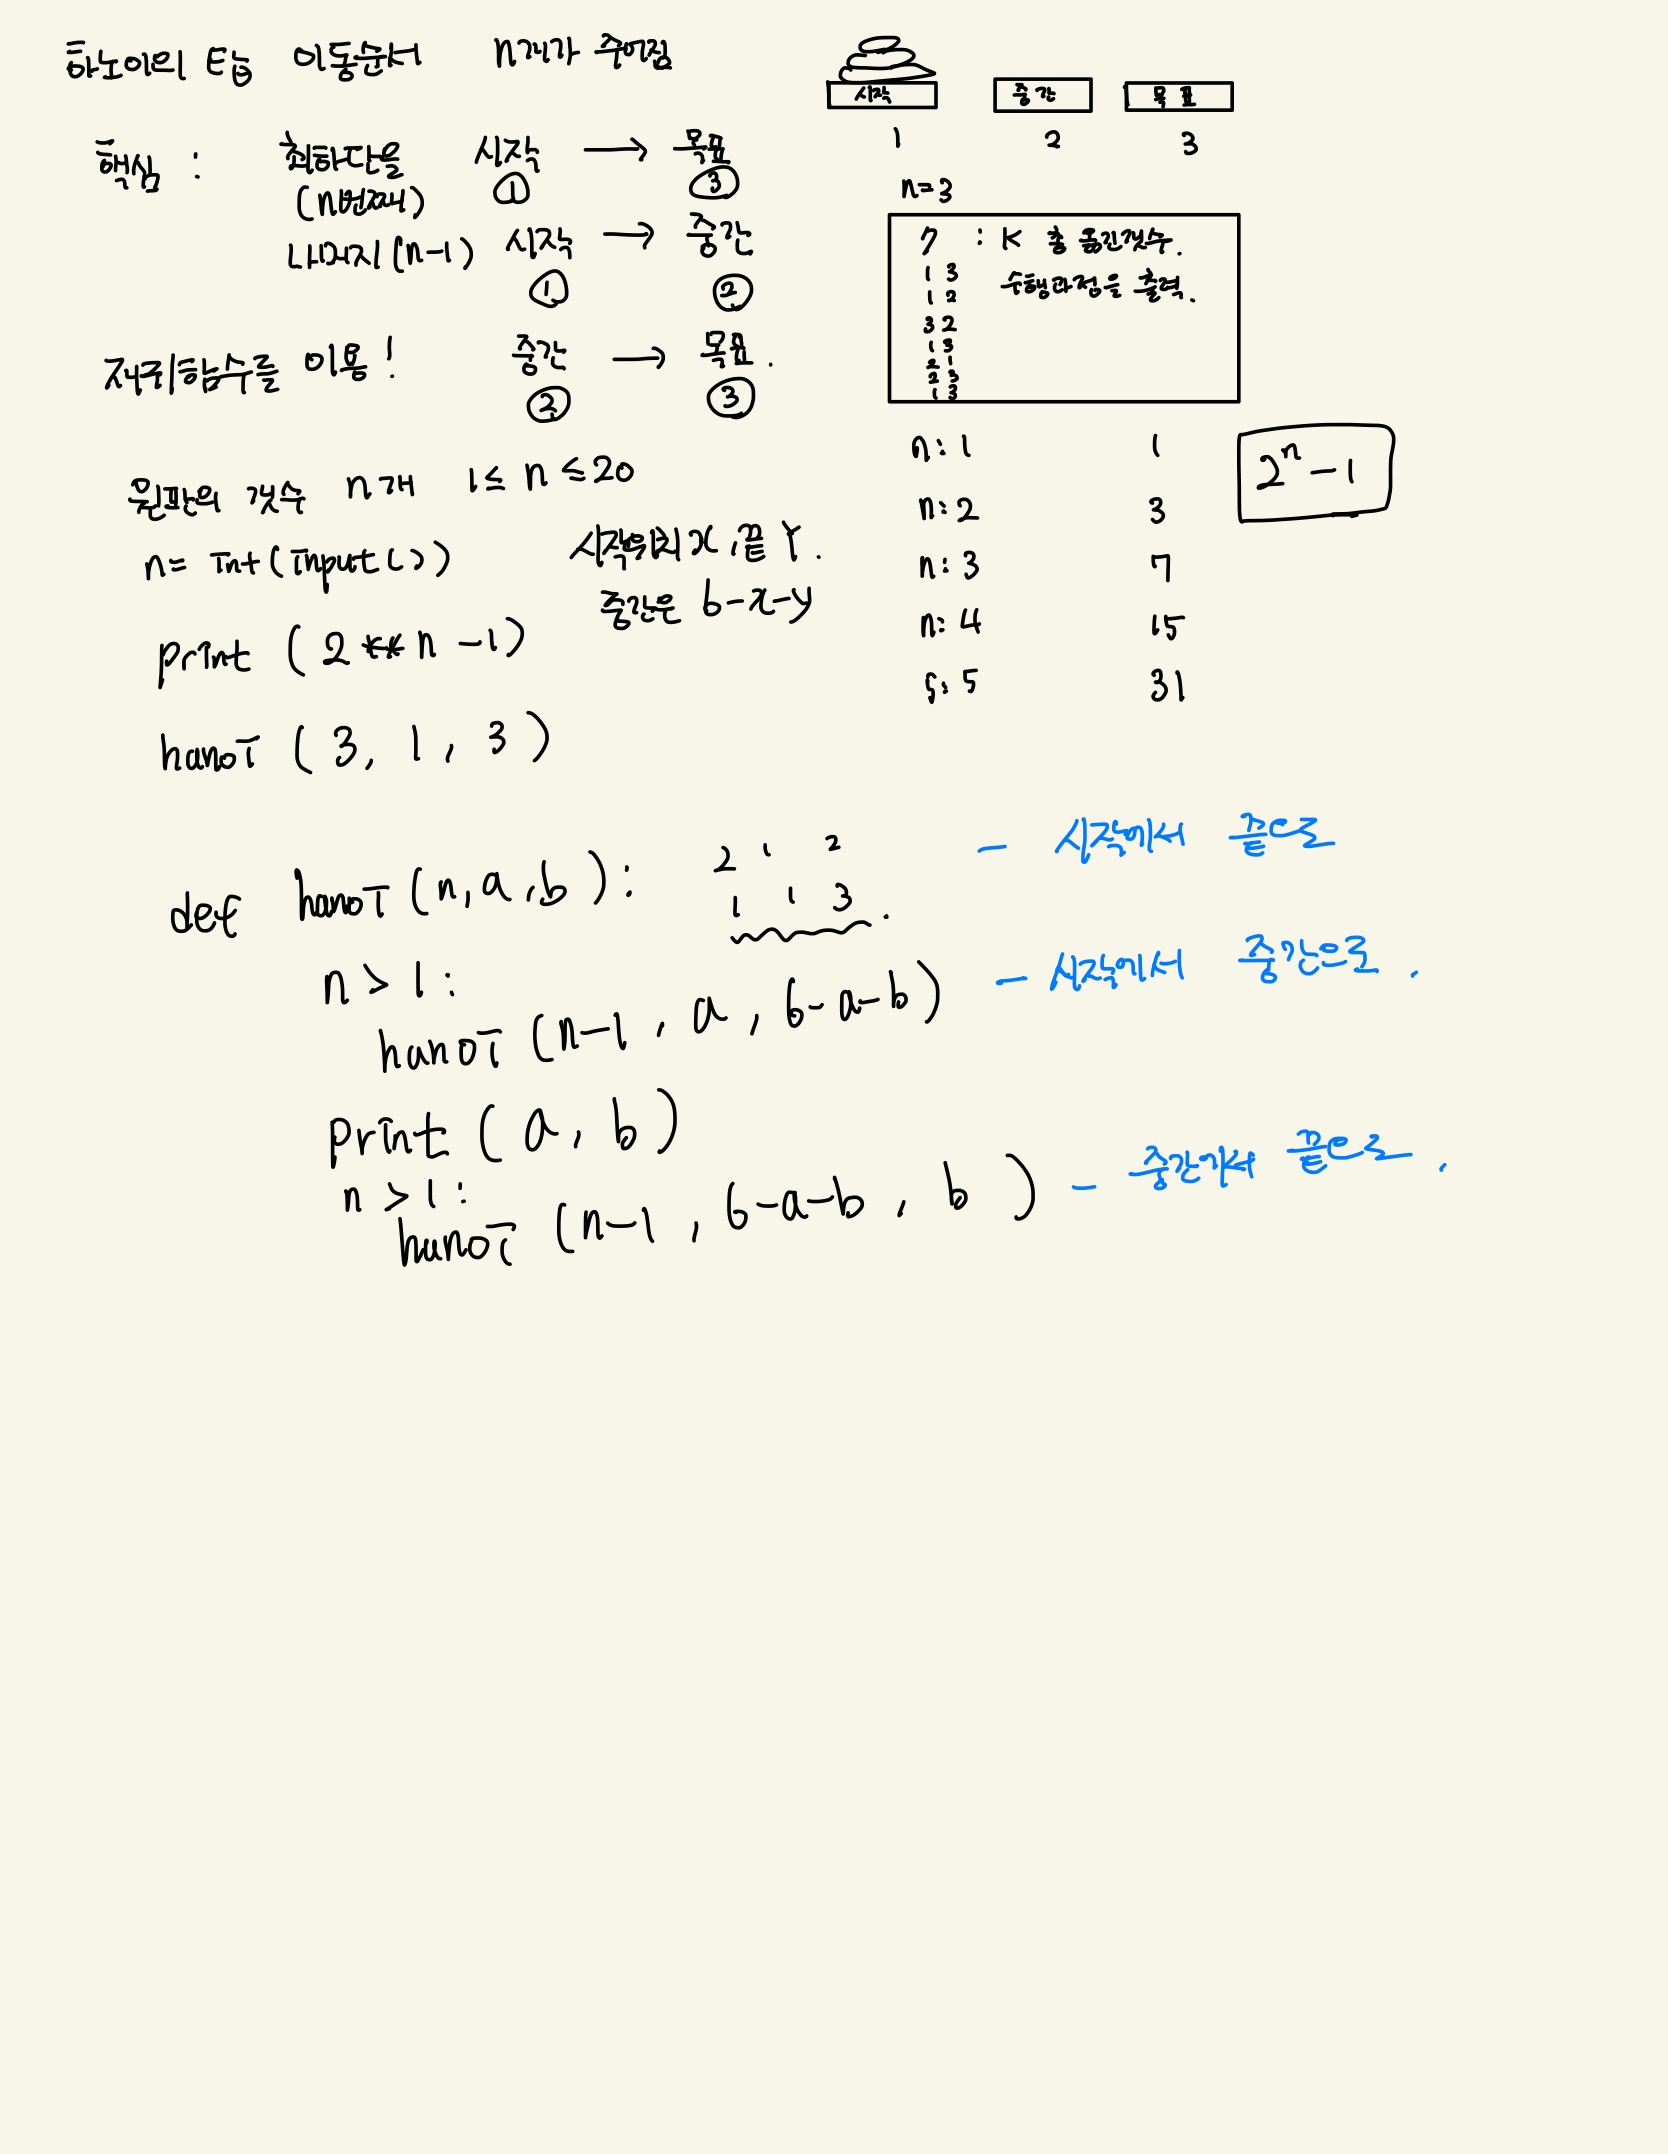 하노이의 탑 이동순서 n개가 주어짐
시작 중간 목표
1 2 3
핵심 : 최하단을 시작 → 목표
(n번째) ① ③
나머지(n-1) 시작 → 중간
① ②
재귀함수를 이용! 중간 → 목표.
② ③
n=3
7 : K 총 옮긴갯수.
1 3 수행과정을 출력.
1 2
3 2
1 3
2 1
2 3
1 3
원판의 갯수 n개 1≤ n ≤20
n= int(input())
시작위치 x, 끝 Y.
중간은 6-x-y
print (2**n -1)
hanoi (3, 1, 3)
n: 1 1
n: 2 3
n: 3 7
n: 4 15
5 31
2ⁿ-1
def hanoi(n,a,b): - 시작에서 끝으로
2 1 2
1 1 3.
n > 1:
hanoi (n-1, a, 6-a-b) - 시작에서 중간으로.
print (a, b)
n > 1:
hanoi (n-1, 6-a-b, b) - 중간에서 끝으로.